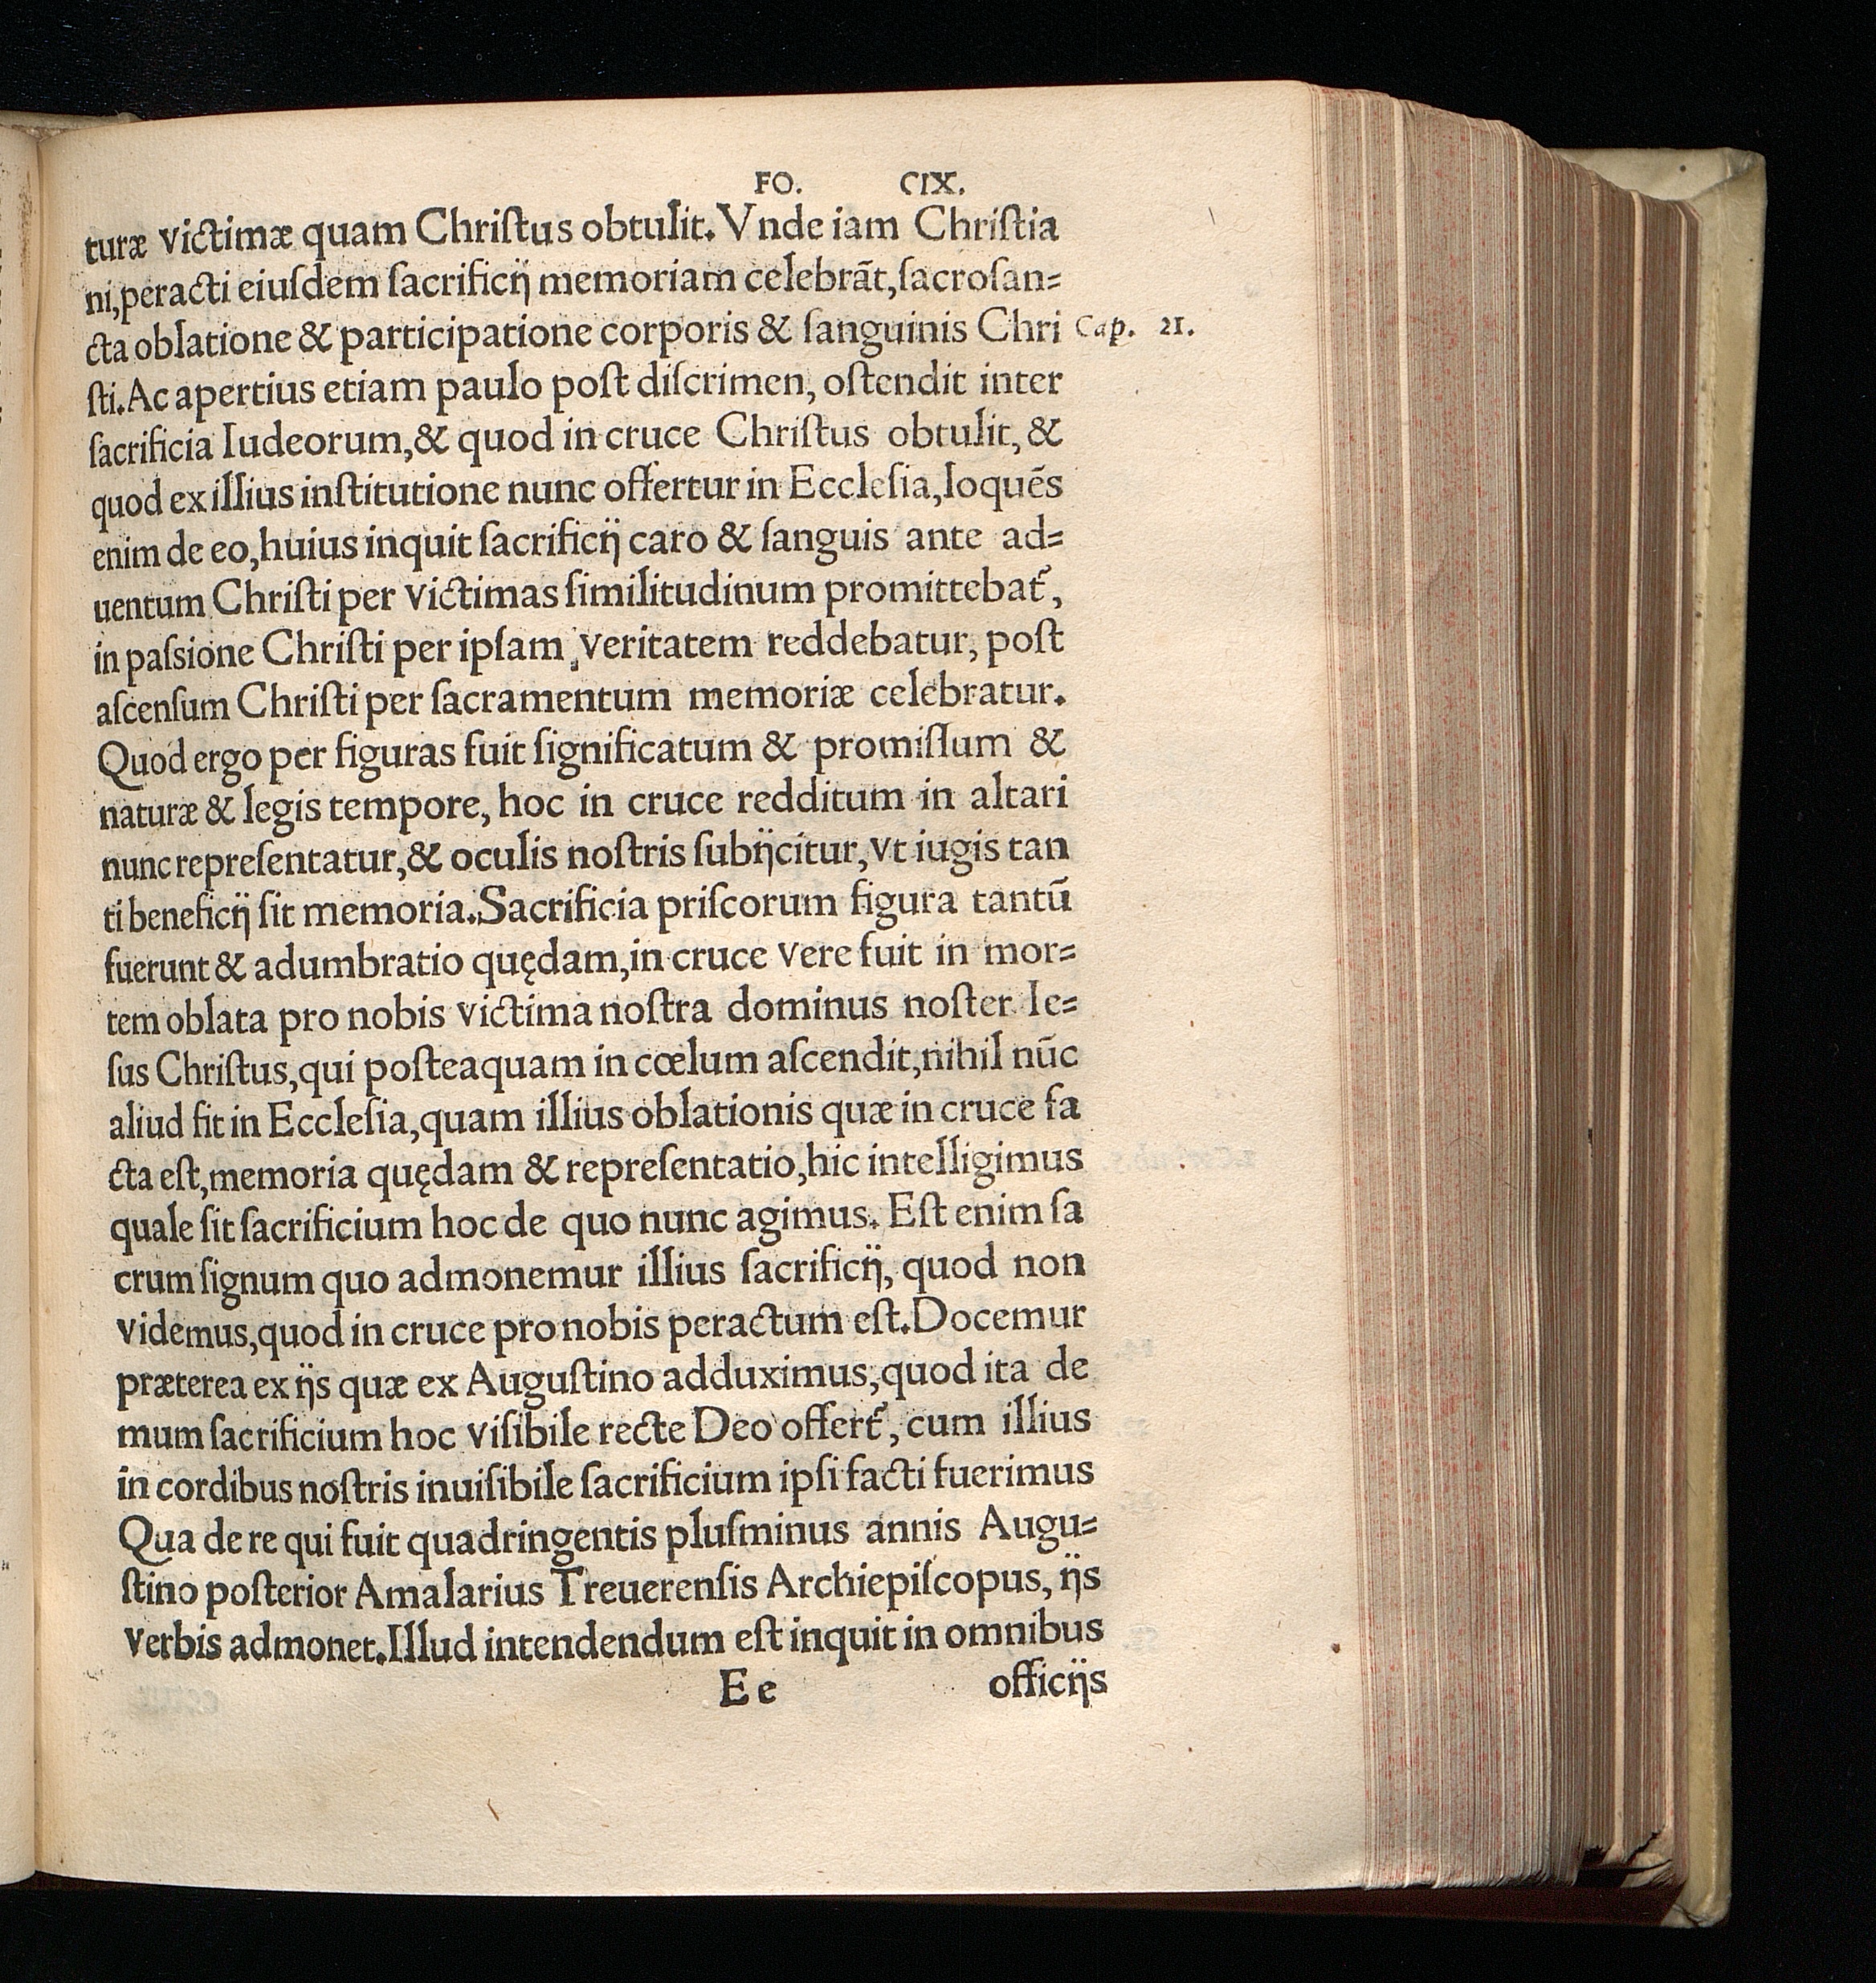 FO. CIX.
turæ victimæ quam Chriſtus obtulit. Vnde iam Chriſtia
ni,peracti eiuſdem ſacrificij memoriam celebrāt,ſacroſan=
cta oblatione & participatione corporis & ſanguinis Chri Cap. 21.
ſti.Ac apertius etiam paulo poſt diſcrimen, oſtendit inter
ſacrificia Iudeorum,& quod in cruce Chriſtus obtulit, &
quod ex illius inſtitutione nunc offertur in Eccleſia,loquēs
enim de eo,huius inquit ſacrificij caro & ſanguis ante ad=
uentum Chriſti per victimas ſimilitudinum promittebat᷑,
in paſsione Chriſti per ipſam veritatem reddebatur, poſt
aſcenſum Chriſti per ſacramentum memoriæ celebratur.
Quod ergo per figuras fuit ſignificatum & promiſſum &
naturæ & legis tempore, hoc in cruce redditum in altari
nunc repreſentatur,& oculis noſtris ſubijcitur,vt iugis tan
ti beneficij ſit memoria.Sacrificia priſcorum figura tantū
fuerunt & adumbratio quędam,in cruce vere fuit in mor=
tem oblata pro nobis victima noſtra dominus noſter Ie=
ſus Chriſtus,qui poſteaquam in cœlum aſcendit,nihil nūc
aliud fit in Eccleſia,quam illius oblationis quæ in cruce fa
cta eſt,memoria quędam & repreſentatio,hic intelligimus
quale ſit ſacrificium hoc de quo nunc agimus. Eſt enim ſa
crum ſignum quo admonemur illius ſacrificij, quod non
videmus,quod in cruce pro nobis peractum eſt.Docemur
præterea ex ijs quæ ex Auguſtino adduximus,quod ita de
mum ſacrificium hoc viſibile recte Deo offert᷑, cum illius
in cordibus noſtris inuiſibile ſacrificium ipſi facti fuerimus
Qua de re qui fuit quadringentis pluſminus annis Augu=
ſtino poſterior Amalarius Treuerenſis Archiepiſcopus, ijs
verbis admonet.Illud intendendum eſt inquit in omnibus
E e officijs